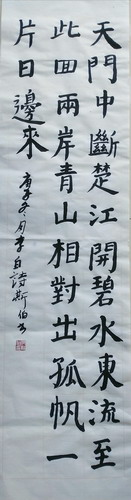 天門中斷楚江開碧水東流至
此回兩岸青山相對出孤帆一
片日邊來
庚子冬月李白詩斯伯書